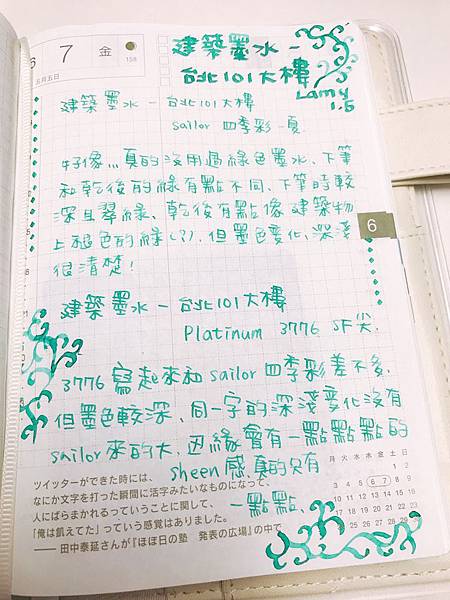 6 7 金
五月五日 158
建築墨水 —
台北101大樓
Lamy
1.5
建築墨水 — 台北101大樓
Sailor 四季彩一頁
好像,,,真的沒用過綠色墨水、下筆
和乾後的綠有點不同、下筆時較
深且翠綠、乾後有點像建築物
上褪色的綠(?)、但墨色變化、深淺
很清楚!
6
建築墨水 — 台北101大樓
Platinum 3776 SF尖.
3776 寫起來和 sailor 四季彩差不多、
但墨色較深、同一字的深淺變化沒有
sailor 來的大、因緣會有一點點點的
sheen 感、真的只有
一點點、
ツイッターができた時には、
なにか文字を打った瞬間に活字みたいなものになって、
人にばらまかれるっていうことに関して、
「俺は飢えてた」っていう感覚はありました。
—— 田中泰延さんが『ほぼ日の塾 発表の広場』の中で
月 火 水 木 金 土 日
1 2
3 4 5 6 7 8 9
10 11 12 13 14 15 16
17 18 19 20 21 22 23